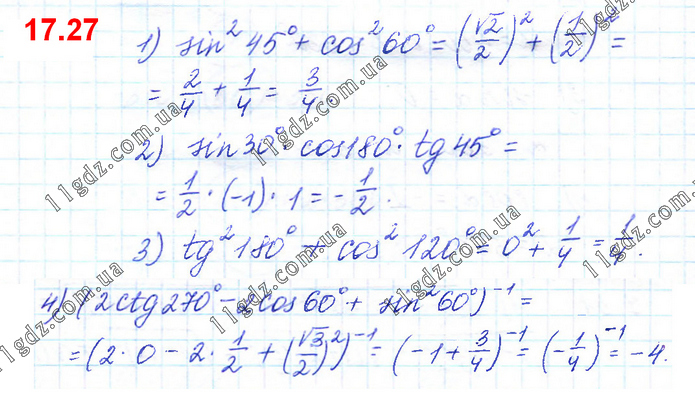 17.27
1) sin² 45° + cos² 60° = (√2/2)² + (1/2)² =
= 2/4 + 1/4 = 3/4.
2) sin 30° · cos 180° · tg 45° =
= 1/2 · (-1) · 1 = - 1/2.
3) tg² 180° + cos² 120° = 0² + 1/4 = 1/4.
4) (2ctg 270° - 2cos 60° + sin² 60°)⁻¹ =
= (2 · 0 - 2 · 1/2 + (√3/2)²)⁻¹ = (-1 + 3/4)⁻¹ = (-1/4)⁻¹ = -4.
11gdz.com.ua
11gdz.com.ua
11gdz.com.ua
11gdz.com.ua
11gdz.com.ua
11gdz.com.ua
11gdz.com.ua